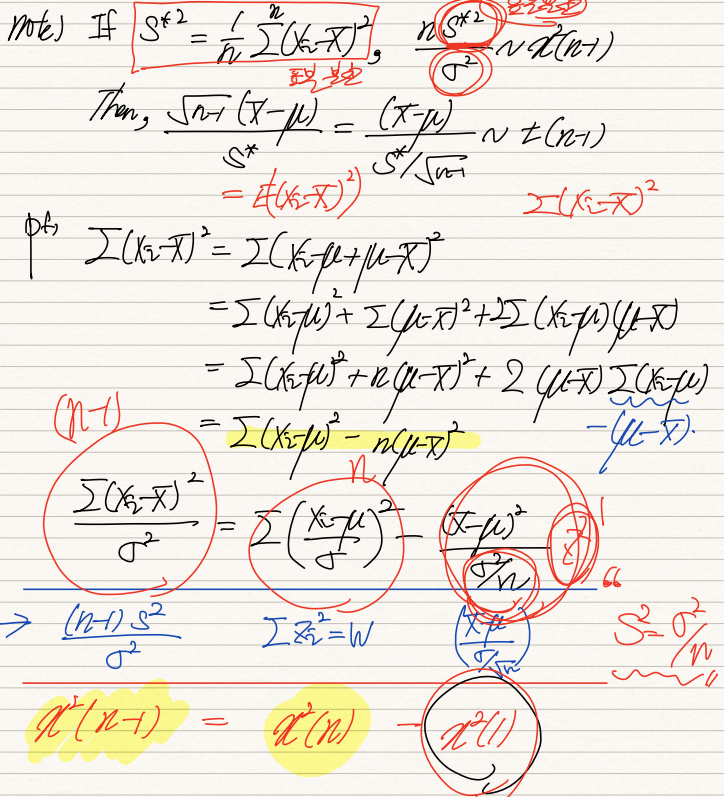 note) If S*² = 1/n Σⁿ(Xi-X̄)², nS*²/σ² ~ χ²(n-1)
표본분산
Then, √n-1 (X̄-μ)/S* = (X̄-μ)/(S*/√n-1) ~ t(n-1)
= E((Xi-X̄)²) Σ(Xi-X̄)²
pf, Σ(Xi-X̄)² = Σ(Xi-μ+μ-X̄)²
= Σ(Xi-μ)² + Σ(μ-X̄)² + 2Σ(Xi-μ)(μ-X̄)
= Σ(Xi-μ)² + n(μ-X̄)² + 2(μ-X̄)Σ(Xi-μ)
= Σ(Xi-μ)² - n(μ-X̄)² -(μ-X̄).
(n-1) n 1
Σ(Xi-X̄)²/σ² = Σ((Xi-μ)/σ)² - (X̄-μ)²/(σ²/n) Z²
→ (n-1)S²/σ² ΣZi² = W ((X̄-μ)/(σ/√n))² "S² = σ²/n"
χ²(n-1) = χ²(n) - χ²(1)